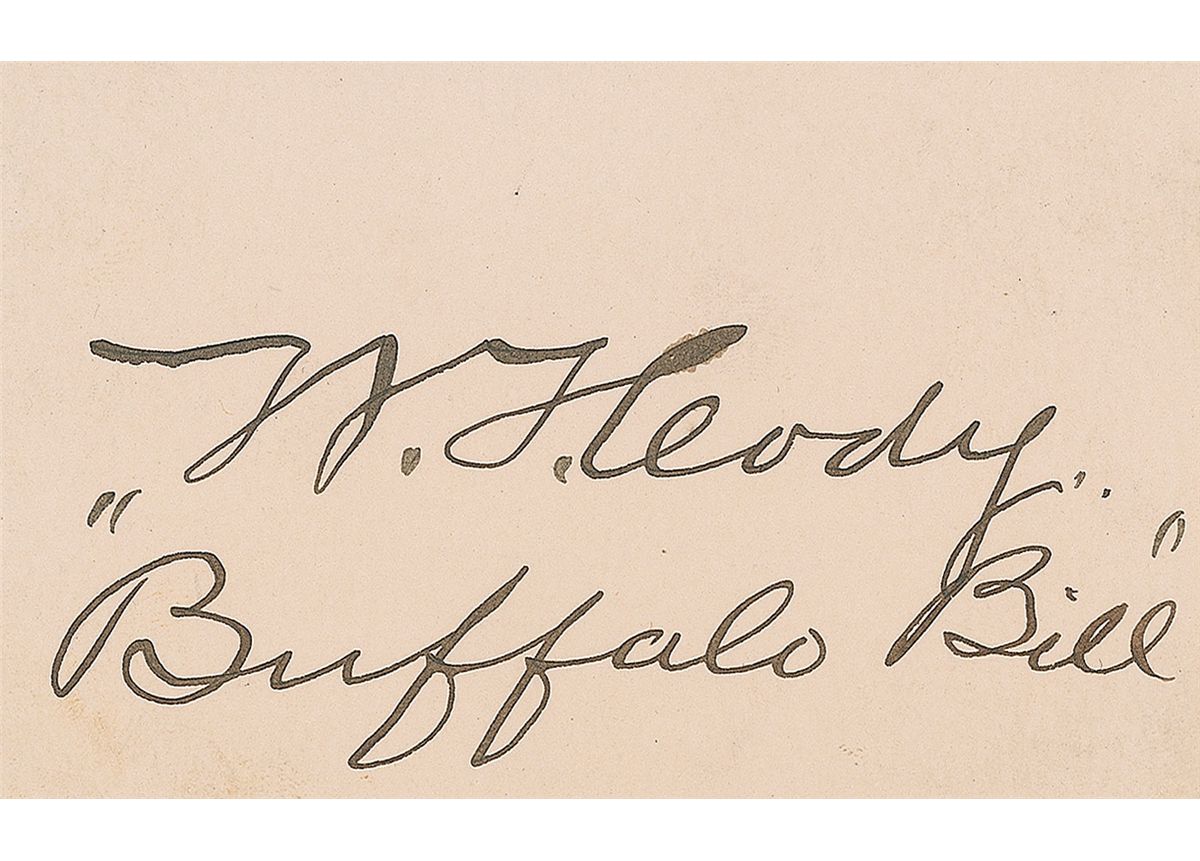 W. F. Cody.
"Buffalo Bill"